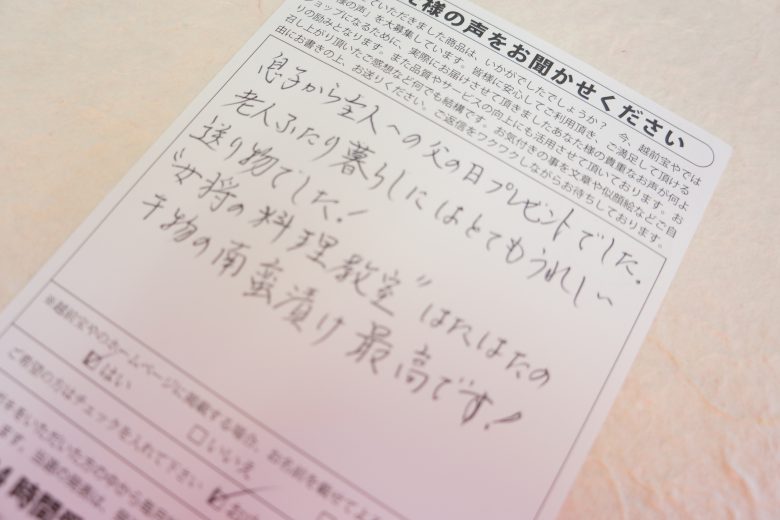 様の声をお聞かせください
ていただきました商品は、いかがでしたでしょうか? 今、越前宝やでは
様の声」を大募集しています。皆様に安心してご利用頂き、ご満足して頂ける
ショップになるために、実際にお届けさせて頂きましたあなた様の貴重なお声が何よ
りの励みとなります。また品質やサービスの向上にも活用させて頂いております。お
召し上がり頂いたご感想など何でも結構です。お気付きの事を文章や似顔絵などご自
由にお書きの上、お送りください。ご返信をワクワクしながらお待ちしております。
息子から主人への父の日プレゼントでした。
老人ふたり暮らしにはとてもうれしい
送り物でした!
"女将の料理教室"はたはたの
干物の南蛮漬け最高です!
※越前宝やのホームページに掲載する場合、お名前を載せてよ
☑はい
□いいえ
ご希望の方はチェックを入れて下さい
をいただいた方の中から毎
ます。当選の発表は、
時間